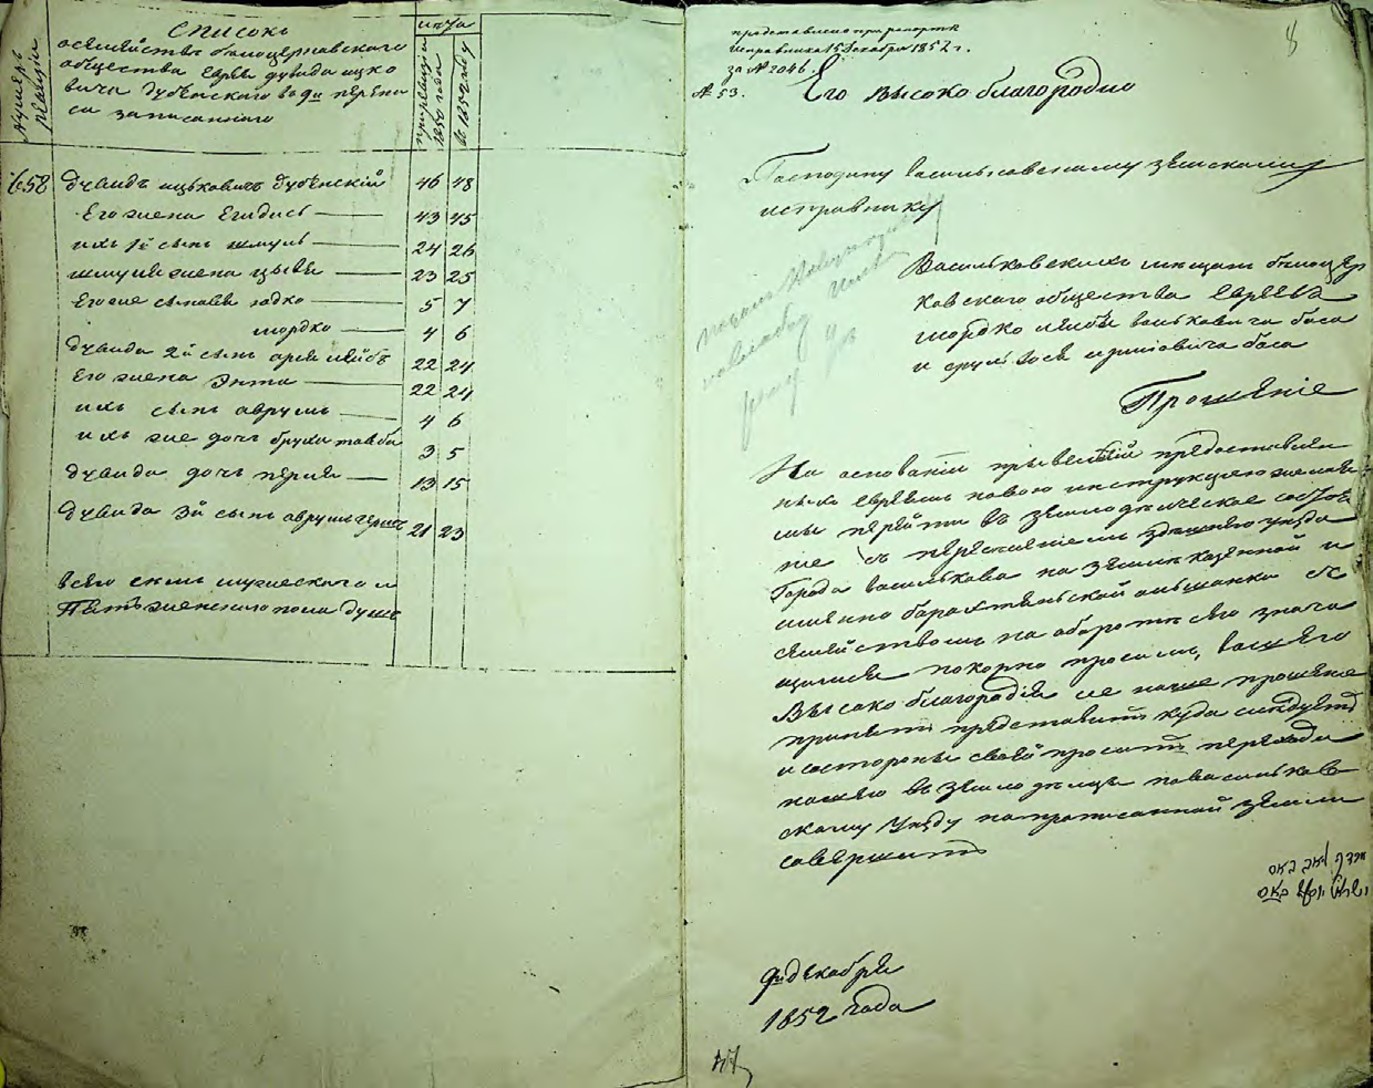 Нумеръ ревизіи
Списокъ
семейства белоцерковского
общества еврея дувида ицко
вича дубенского во 9й перепи
си записаннаго
лѣта
по ревизіи 1850 года
въ 1852 году
658 дувидъ ицьковичъ дубенскій 46 48
его жена 43 45
ихъ 1й сынъ шмуль 24 26
шмуля жена цывя 23 25
его же сыновья 5 7
мордко 4 6
дувида 2й сынъ арія лейбъ 22 24
его жена Энта 22 24
ихъ сынъ аврумъ 4 6
ихъ же дочь бруха 3 5
дувида дочь перля 13 15
дувида 3й сынъ аврумъ гершъ 21 23
всего семь мужеского и
Пять женского пола душъ
8
представлено при рапортѣ
исправника 15 декабря 1852 г.
за № 2046.
№ 53.
Его высокоблагородию
Господину васильковскому земскому
исправнику
Васильковскихъ мещанъ белоцер
ковского общества евреевъ
мордко лейбы баса
и сруль иося баса
Прошеніе
На основаніи привелегій предоставлен
ныхъ евреямъ новою инструкцією желая
мы перейти въ земледѣлческое состоя
ніе съ переселеніемъ здешнего уезда
Города василькова на земли казенной и
именно барахтянской ольшанки съ
семействомъ на оборотѣ сего знача
щимися покорно просимъ, вашего
Высокоблагородія сіе наше прошеніе
принять представить куда слѣдуетъ
и состороны своей просить перехода
нашего въ земледѣлцы по васильков
скому уезду на прописанной земли
совершить
מרדכי לייב באס
ישראל יוסף באס
9 декабря
1852 года